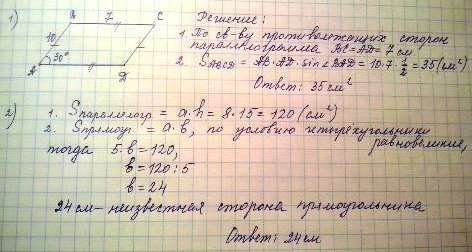 1)
B 7 C
10
30°
A D
Решение:
1. По св-ву противолежащих сторон
параллелограмма BC=AD=7 см
2. S ABCD = AB·AD·sin∠BAD = 10·7·1/2 = 35(см²)
Ответ: 35 см²
2) 1. Sпараллелогр = a·h = 8·15=120(см²)
2. Sпрямоуг = a·b, по условию четырёхугольники
равновеликие,
тогда 5·b=120,
b=120:5
b=24
24см – неизвестная сторона прямоугольника
Ответ: 24см